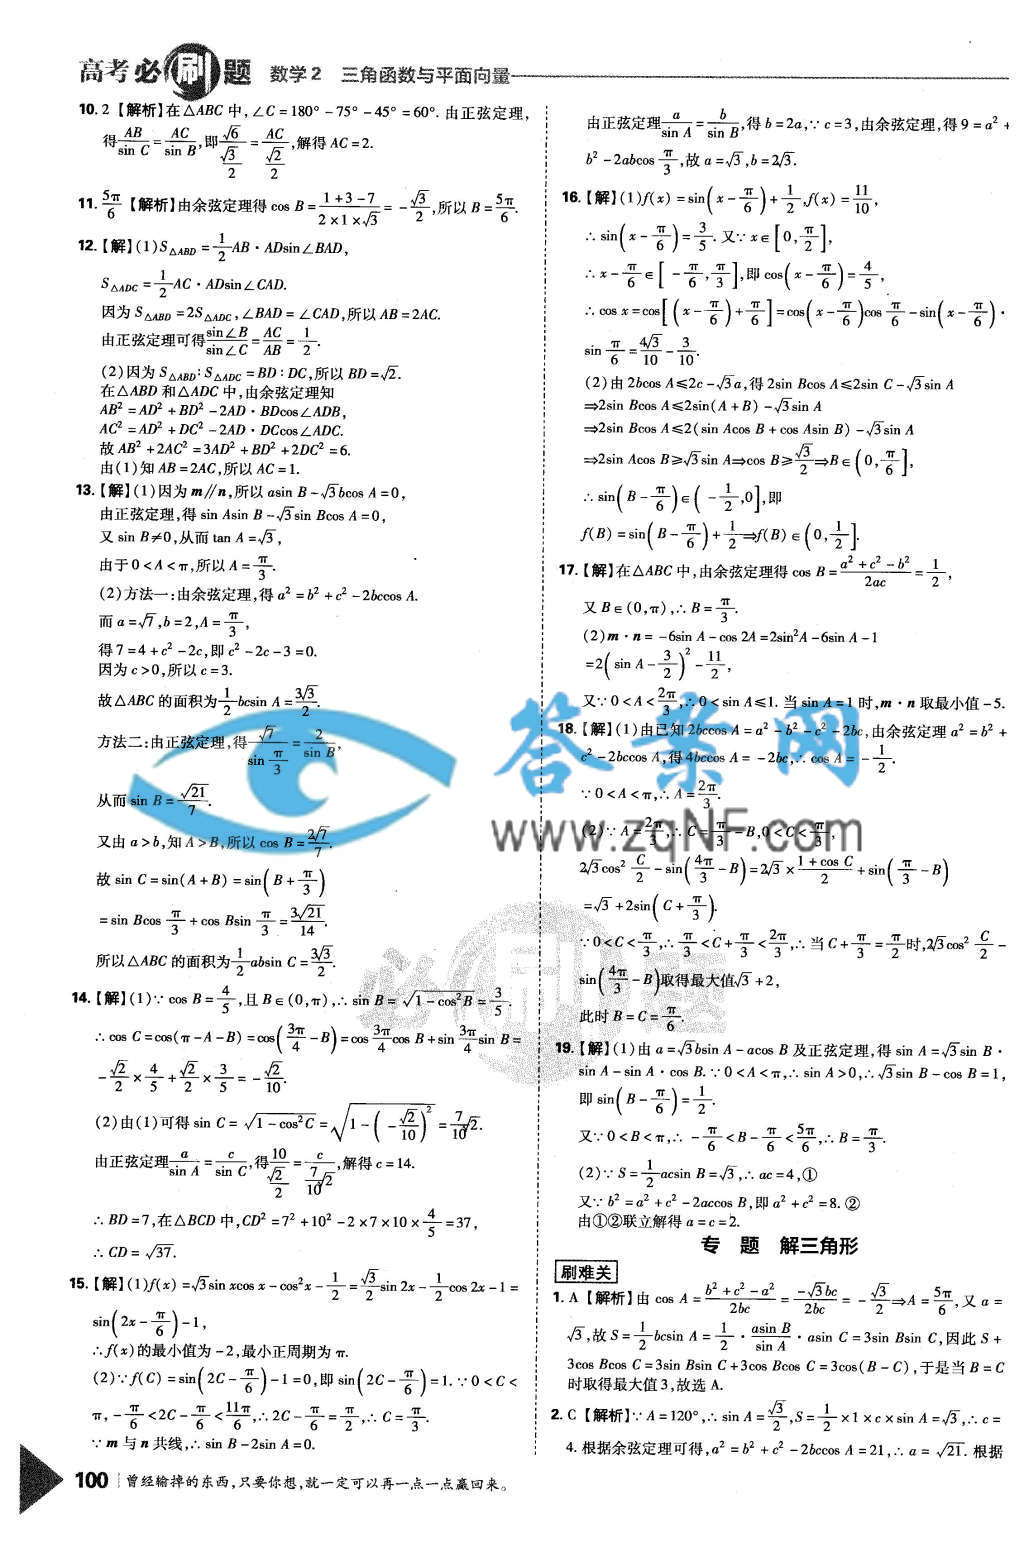 高考必刷题 数学2 三角函数与平面向量
10. 2 【解析】在△ABC中,∠C=180°-75°-45°=60°. 由正弦定理,
得AB/sin C=AC/sin B,即√6/(√3/2)=AC/(√2/2),解得AC=2.
11. 5π/6 【解析】由余弦定理得cos B=(1+3-7)/(2×1×√3)=-√3/2,所以B=5π/6.
12.【解】(1)S△ABD=1/2AB·ADsin∠BAD,
S△ADC=1/2AC·ADsin∠CAD.
因为S△ABD=2S△ADC,∠BAD=∠CAD,所以AB=2AC.
由正弦定理可得sin∠B/sin∠C=AC/AB=1/2.
(2)因为S△ABD:S△ADC=BD:DC,所以BD=√2.
在△ABD和△ADC中,由余弦定理知
AB²=AD²+BD²-2AD·BDcos∠ADB,
AC²=AD²+DC²-2AD·DCcos∠ADC.
故AB²+2AC²=3AD²+BD²+2DC²=6.
由(1)知AB=2AC,所以AC=1.
13.【解】(1)因为m∥n,所以asin B-√3bcos A=0,
由正弦定理,得sin Asin B-√3sin Bcos A=0,
又sin B≠0,从而tan A=√3,
由于0<A<π,所以A=π/3.
(2)方法一:由余弦定理,得a²=b²+c²-2bccos A.
而a=√7,b=2,A=π/3,
得7=4+c²-2c,即c²-2c-3=0.
因为c>0,所以c=3.
故△ABC的面积为1/2bcsin A=3√3/2.
方法二:由正弦定理,得√7/sin(π/3)=2/sin B,
从而sin B=√21/7.
又由a>b,知A>B,所以cos B=2√7/7.
故sin C=sin(A+B)=sin(B+π/3)
=sin Bcos π/3+cos Bsin π/3=3√21/14.
所以△ABC的面积为1/2absin C=3√3/2.
14.【解】(1)∵cos B=4/5,且B∈(0,π),∴sin B=√(1-cos²B)=3/5.
∴cos C=cos(π-A-B)=cos(3π/4-B)=cos 3π/4cos B+sin 3π/4sin B=
-√2/2×4/5+√2/2×3/5=-√2/10.
(2)由(1)可得sin C=√(1-cos²C)=√(1-(-√2/10)²)=7/10√2.
由正弦定理a/sin A=c/sin C,得10/(√2/2)=c/(7/10√2),解得c=14.
∴BD=7,在△BCD中,CD²=7²+10²-2×7×10×4/5=37,
∴CD=√37.
15.【解】(1)f(x)=√3sin xcos x-cos²x-1/2=√3/2sin 2x-1/2cos 2x-1=
sin(2x-π/6)-1,
∴f(x)的最小值为-2,最小正周期为π.
(2)∵f(C)=sin(2C-π/6)-1=0,即sin(2C-π/6)=1.∵0<C<
π,-π/6<2C-π/6<11π/6,∴2C-π/6=π/2,∴C=π/3.
∵m与n共线,∴sin B-2sin A=0.
由正弦定理a/sin A=b/sin B,得b=2a,∵c=3,由余弦定理,得9=a²+
b²-2abcos π/3,故a=√3,b=2√3.
16.【解】(1)f(x)=sin(x-π/6)+1/2,f(x)=11/10,
∴sin(x-π/6)=3/5.又∵x∈[0,π/2],
∴x-π/6∈[-π/6,π/3],即cos(x-π/6)=4/5,
∴cos x=cos[(x-π/6)+π/6]=cos(x-π/6)cos π/6-sin(x-π/6)·
sin π/6=4√3/10-3/10.
(2)由2bcos A≤2c-√3a,得2sin Bcos A≤2sin C-√3sin A
⇒2sin Bcos A≤2sin(A+B)-√3sin A
⇒2sin Bcos A≤2(sin Acos B+cos Asin B)-√3sin A
⇒2sin Acos B≥√3sin A⇒cos B≥√3/2⇒B∈(0,π/6],
∴sin(B-π/6)∈(-1/2,0],即
f(B)=sin(B-π/6)+1/2⇒f(B)∈(0,1/2].
17.【解】在△ABC中,由余弦定理得cos B=(a²+c²-b²)/2ac=1/2,
又B∈(0,π),∴B=π/3.
(2)m·n=-6sin A-cos 2A=2sin²A-6sin A-1
=2(sin A-3/2)²-11/2,
又∵0<A<2π/3,∴0<sin A≤1.当sin A=1时,m·n取最小值-5.
18.【解】(1)由已知2bccos A=a²-b²-c²-2bc,由余弦定理a²=b²+
c²-2bccos A,得4bccos A=-2bc,∴cos A=-1/2.
∵0<A<π,∴A=2π/3.
(2)∵A=2π/3,∴C=π/3-B,0<C<π/3,
2√3cos² C/2-sin(4π/3-B)=2√3×(1+cos C)/2+sin(π/3-B)
=√3+2sin(C+π/3).
∵0<C<π/3,∴π/3<C+π/3<2π/3,∴当C+π/3=π/2时,2√3cos² C/2-
sin(4π/3-B)取得最大值√3+2,
此时B=C=π/6.
19.【解】(1)由a=√3bsin A-acos B及正弦定理,得sin A=√3sin B·
sin A-sin A·cos B.∵0<A<π,∴sin A>0,∴√3sin B-cos B=1,
即sin(B-π/6)=1/2.
又∵0<B<π,∴-π/6<B-π/6<5π/6,∴B=π/3.
(2)∵S=1/2acsin B=√3,∴ac=4,①
又∵b²=a²+c²-2accos B,即a²+c²=8.②
由①②联立解得a=c=2.
专 题 解三角形
刷难关
1. A 【解析】由cos A=(b²+c²-a²)/2bc=-√3bc/2bc=-√3/2⇒A=5π/6,又a=
√3,故S=1/2bcsin A=1/2·asin B/sin A·asin C=3sin Bsin C,因此S+
3cos Bcos C=3sin Bsin C+3cos Bcos C=3cos(B-C),于是当B=C
时取得最大值3,故选A.
2. C 【解析】∵A=120°,∴sin A=√3/2,S=1/2×1×c×sin A=√3,∴c=
4.根据余弦定理可得,a²=b²+c²-2bccos A=21,∴a=√21.根据
100 曾经输掉的东西,只要你想,就一定可以再一点一点赢回来。
答案网
www.zqNF.com
必刷题